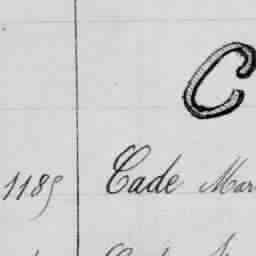 C
1185 Cade Mar